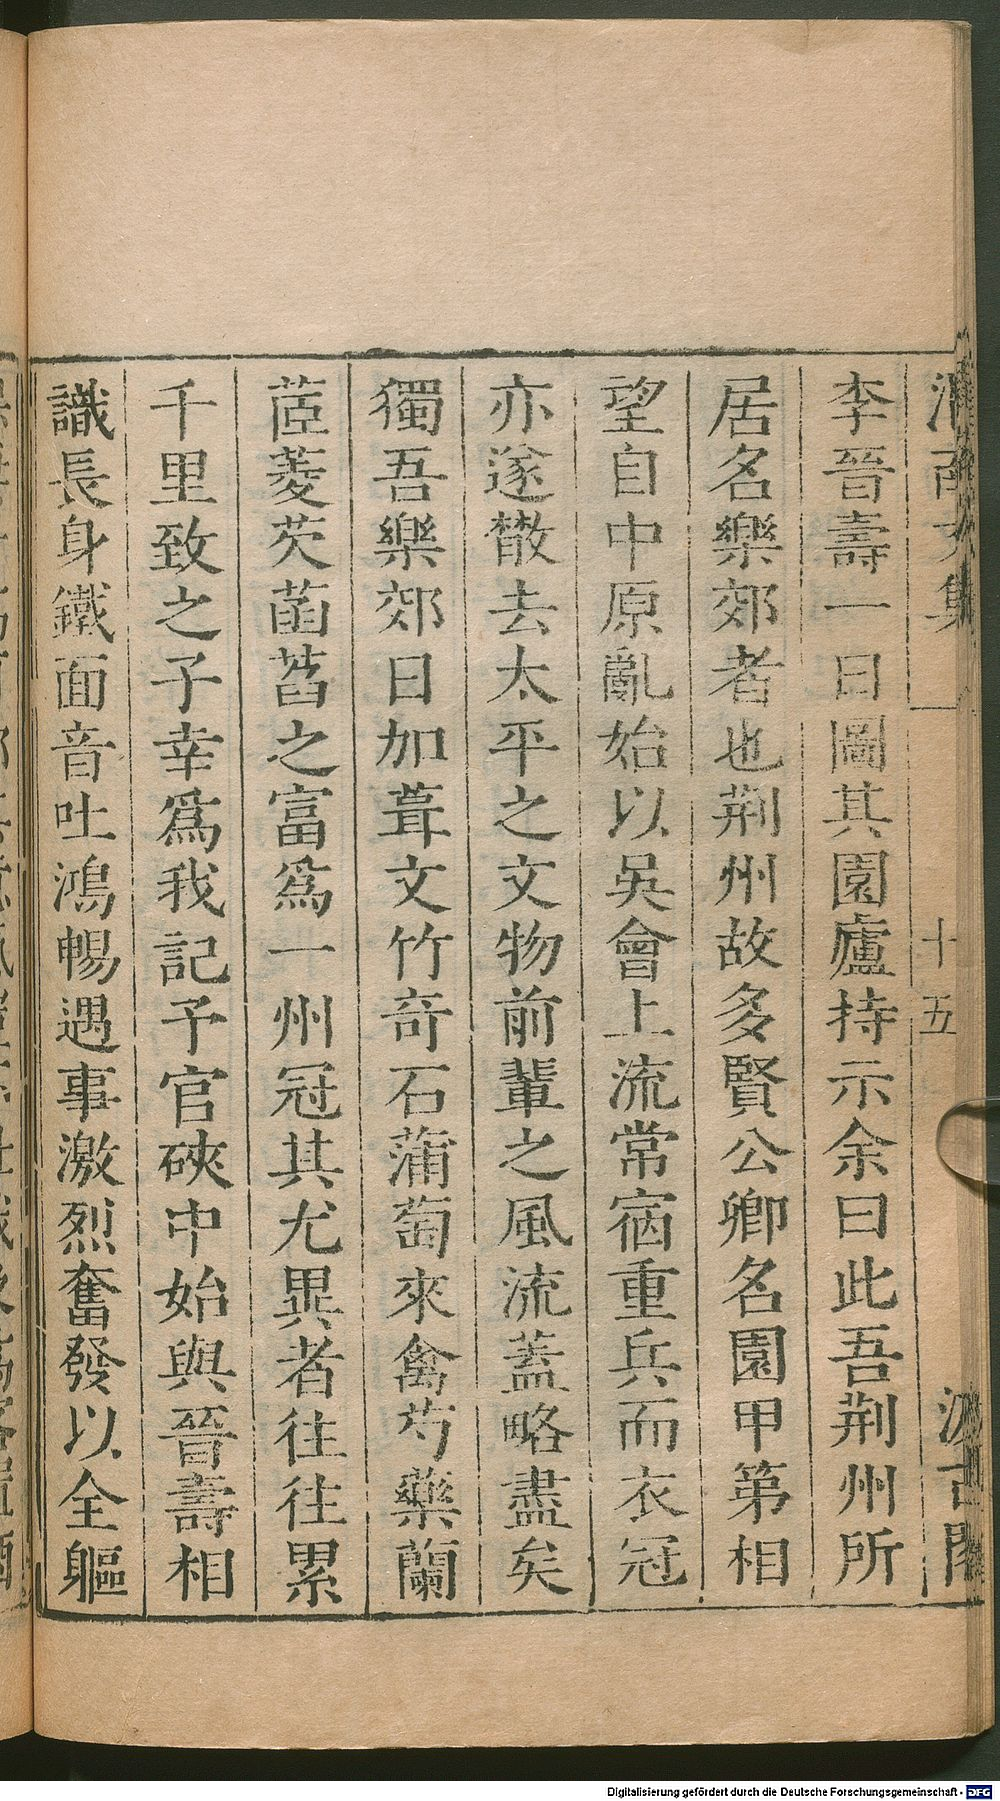 渭南文集 十五 汲古閣
李晉壽一日圖其園廬持示余曰此吾荆州所
居名樂郊者也荆州故多賢公卿名園甲第相
望自中原亂始以吳會上流常宿重兵而衣冠
亦遂散去太平之文物前輩之風流蓋略盡矣
獨吾樂郊日加葺文竹竒石蒲萄來禽芍藥蘭
茝菱芡菡萏之富爲一州冠其尤異者往往累
千里致之子幸爲我記予官硤中始與晉壽相
識長身鐵面音吐鴻暢遇事激烈奮發以全軀
Digitalisierung gefördert durch die Deutsche Forschungsgemeinschaft - DFG